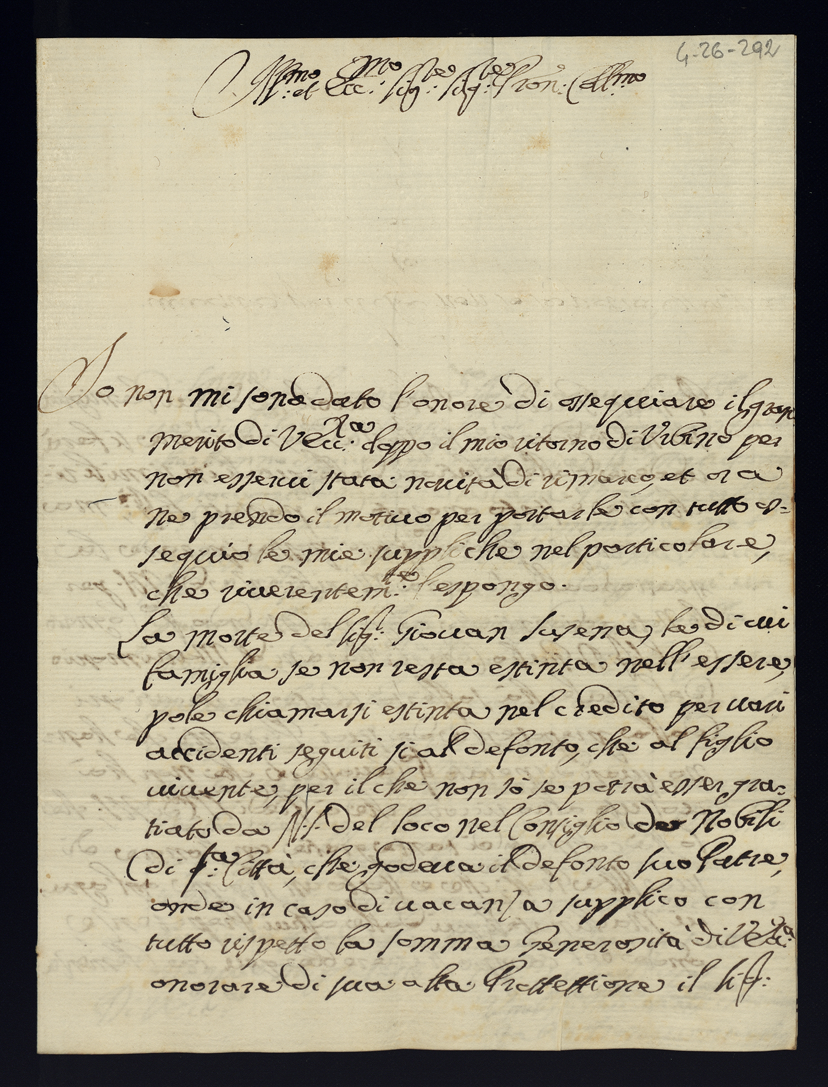 4-26-292
Ill.mo et Ecc.mo Sig.re Sig.re Pron: Coll.mo
Io non mi son dato l'onore di ossequiare il gran
merito di V. Ecc.za doppo il mio ritorno di Urbino per
non esservi stata novità di rimarco, et ora
ne prendo il motivo per portarle con tutto os=
sequio le mie suppliche nel particolare,
che riverentem.te l'espongo.
La morte del Sig.r Giovan, la di cui
famiglia se non resta estinta nell'essere,
pole chiamarsi estinta nel credito per varij
accidenti seguiti sì al defonto, che al figlio
vivente, per il che non sò se potrà esser gra=
tiato da N.S. del loco nel Consiglio de Nobili
di q.ta Città, che godeva il defonto suo Patre,
onde in caso di vacanza supplico con
tutto rispetto la somma Generosità di V. Ecc.za
onorare di sua alta Protettione il Sig.r